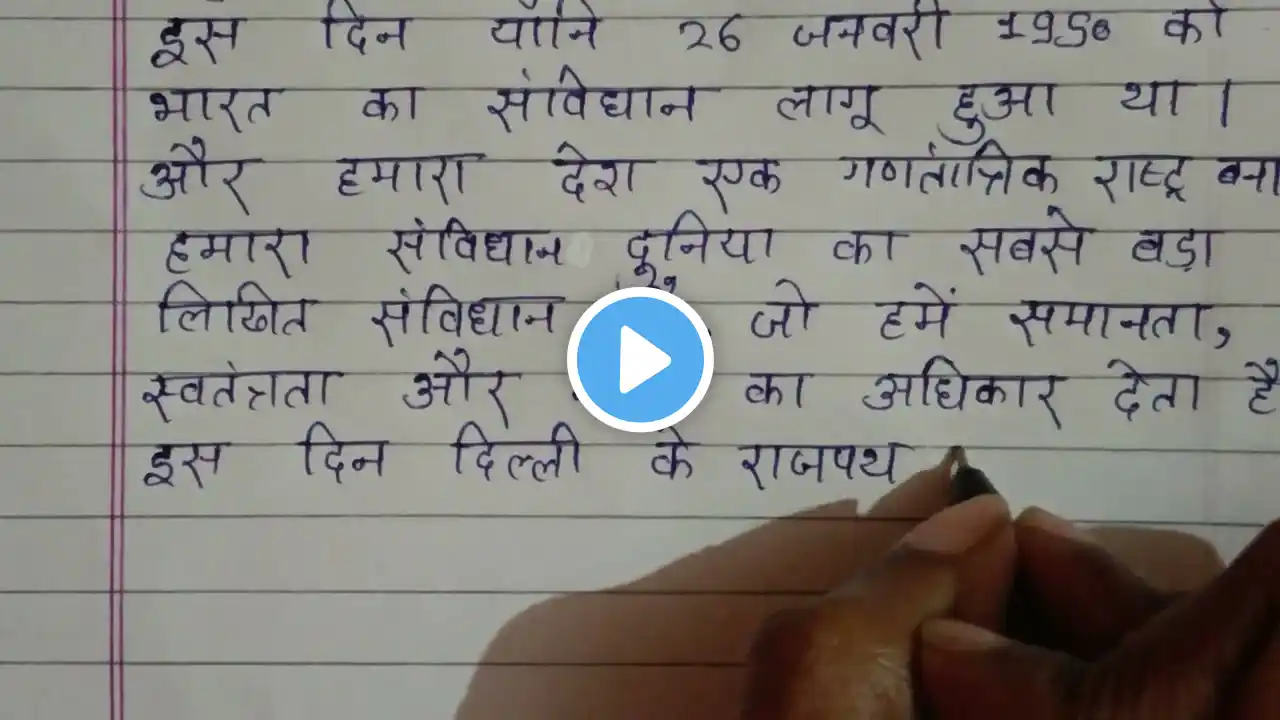 इस दिन यानि 26 जनवरी 1950 को
भारत का संविधान लागू हुआ था।
और हमारा देश एक गणतांत्रिक राष्ट्र बना
हमारा संविधान दुनिया का सबसे बड़ा
लिखित संविधान जो हमें समानता,
स्वतंत्रता और का अधिकार देता है
इस दिन दिल्ली के राजपथ